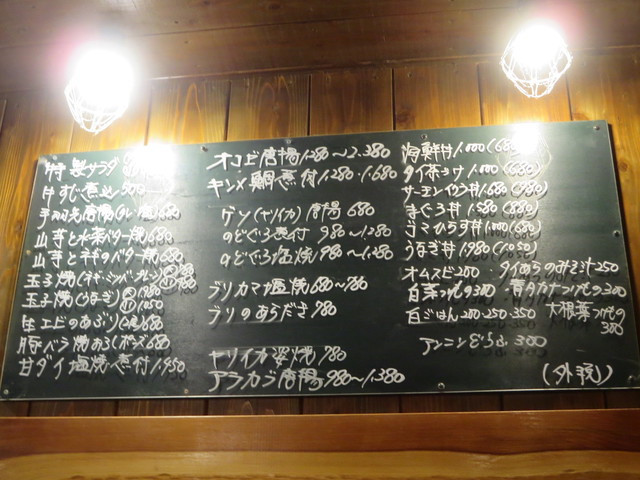 特製サラダ
牛すじ煮込 500
手羽先唐揚(タレ・塩)
山芋と水菜バター焼 680
山芋とネギのバター焼 680
玉子焼(ネギ・ミツバ・プレーン)
玉子焼(うなぎ)
生エビのあぶり 680
豚バラ焼おろしポン酢 680
甘ダイ塩焼・煮付 1.950
オコゼ唐揚 1280〜2.380
キンメ鯛煮付 1.280〜1.680
ゲソ(ヤリイカ)唐揚 680
のどぐろ煮付 980〜1.280
のどぐろ塩焼 980〜1.280
ブリカマ塩焼 680〜780
ブリのあらだき 780
ヤリイカ姿焼 780
アラカブ唐揚 980〜1.380
海鮮丼 1.000(680)
タイ茶づけ 1.000(680)
サーモンイクラ丼 1.680(980)
まぐろ丼 1.580(880)
ゴマひらす丼 1.000(680)
うなぎ丼 1.980(1.050)
オムスビ 200・タイあらのみそ汁 250
白菜つけもの 300 青タカナつけもの 300
白ごはん 200・250・350 大根葉つけもの
300
アンニンどうふ 300
(外税)